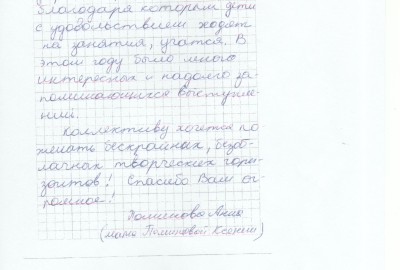 благодаря которым дети
с удовольствием ходят
на занятия, учатся. В
этом году было много
интересных и надолго за-
поминающихся выступле-
ний.
Коллективу хочется по
желать бескрайных, безоб-
лачных творческих гори-
зонтов! Спасибо Вам ог-
ромное!
Поминова Анна
(мама Поминовой Ксении)